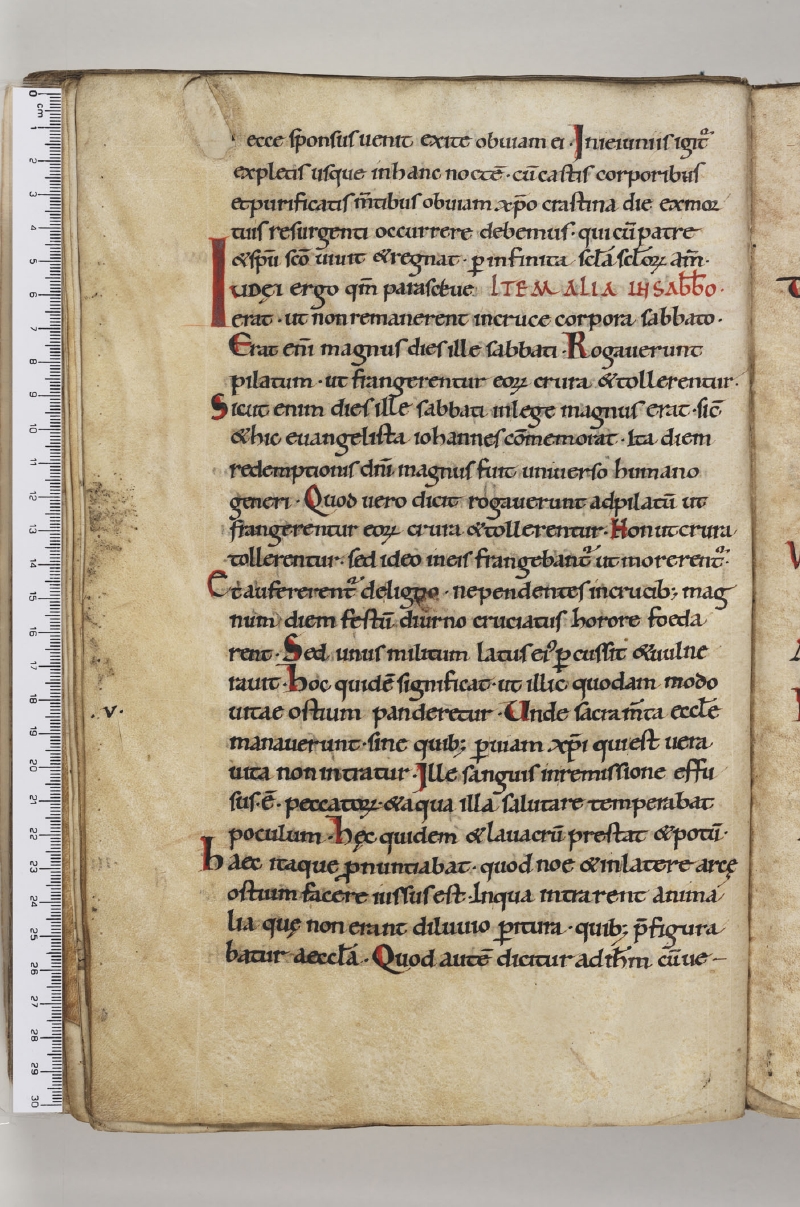 ecce sponsus uenit exite obuiam ei · Inieiuniis igit᷑
expletis usque in hanc noctē · cū castis corporibus
et purificatis m̄tibus obuiam xp̄o crastina die ex moꝛ
tuis resurgenti occurrere debemus · qui cū patre
& sp̄u sc̄o uiuit & regnat · ꝑ infinita scl̄a scl̄oꝝ am̄ ·
Iudęi ergo qm̄ parasceue ITEM ALIA IN SABB̄O ·
erat · ut non remanerent in cruce corpora sabbato ·
Erat eni̅ magnus dies ille sabbati · Rogauerunt
pilatum · ut frangerentur eoꝝ crura & tollerentur ·
Sicut enim dies ille sabbati in lege magnus erat · sic̄
& hic euangelista iohannes cōmemorat · Ita diem
redemptionis dn̄i magnus fuit uniuerso humano
generi · Quod uero dicit rogauerunt ad pilatū ut
frangerentur eoꝝ crura & tollerentur · Non ut crura
tollerentur · sed ideo in eis frangebant᷑ ut morerent᷑ ·
Et aufererent᷑ de ligno · ne pendentes in crucib; mag
num diem festū diurno cruciatus horore foeda
rent · Sed unus militum latus ei᷒ ꝑcussit & uulne
rauit · hoc quidē significat · ut illic quodam modo
· v · uitae ostium panderetur · Unde sacram̄ta eccl̄e
manauerunt · sine quib; ꝑ uiam xp̄i qui est uera
uita non intratur · Ille sanguis in remissione effu
sus · ē · peccatoꝝ · & aqua illa salutare temperabat
poculum · hęc quidem & lauacrū prestat & potū ·
haec itaque ꝓnuntiabat · quod noe & in latere arcę
ostium facere iussus est · In qua intrarent anima
lia quę non erant diluuio ꝑitura · quib; p̄figura
batur aeccl̄a · Quod autē dicitur ad ih̄m cū ue-